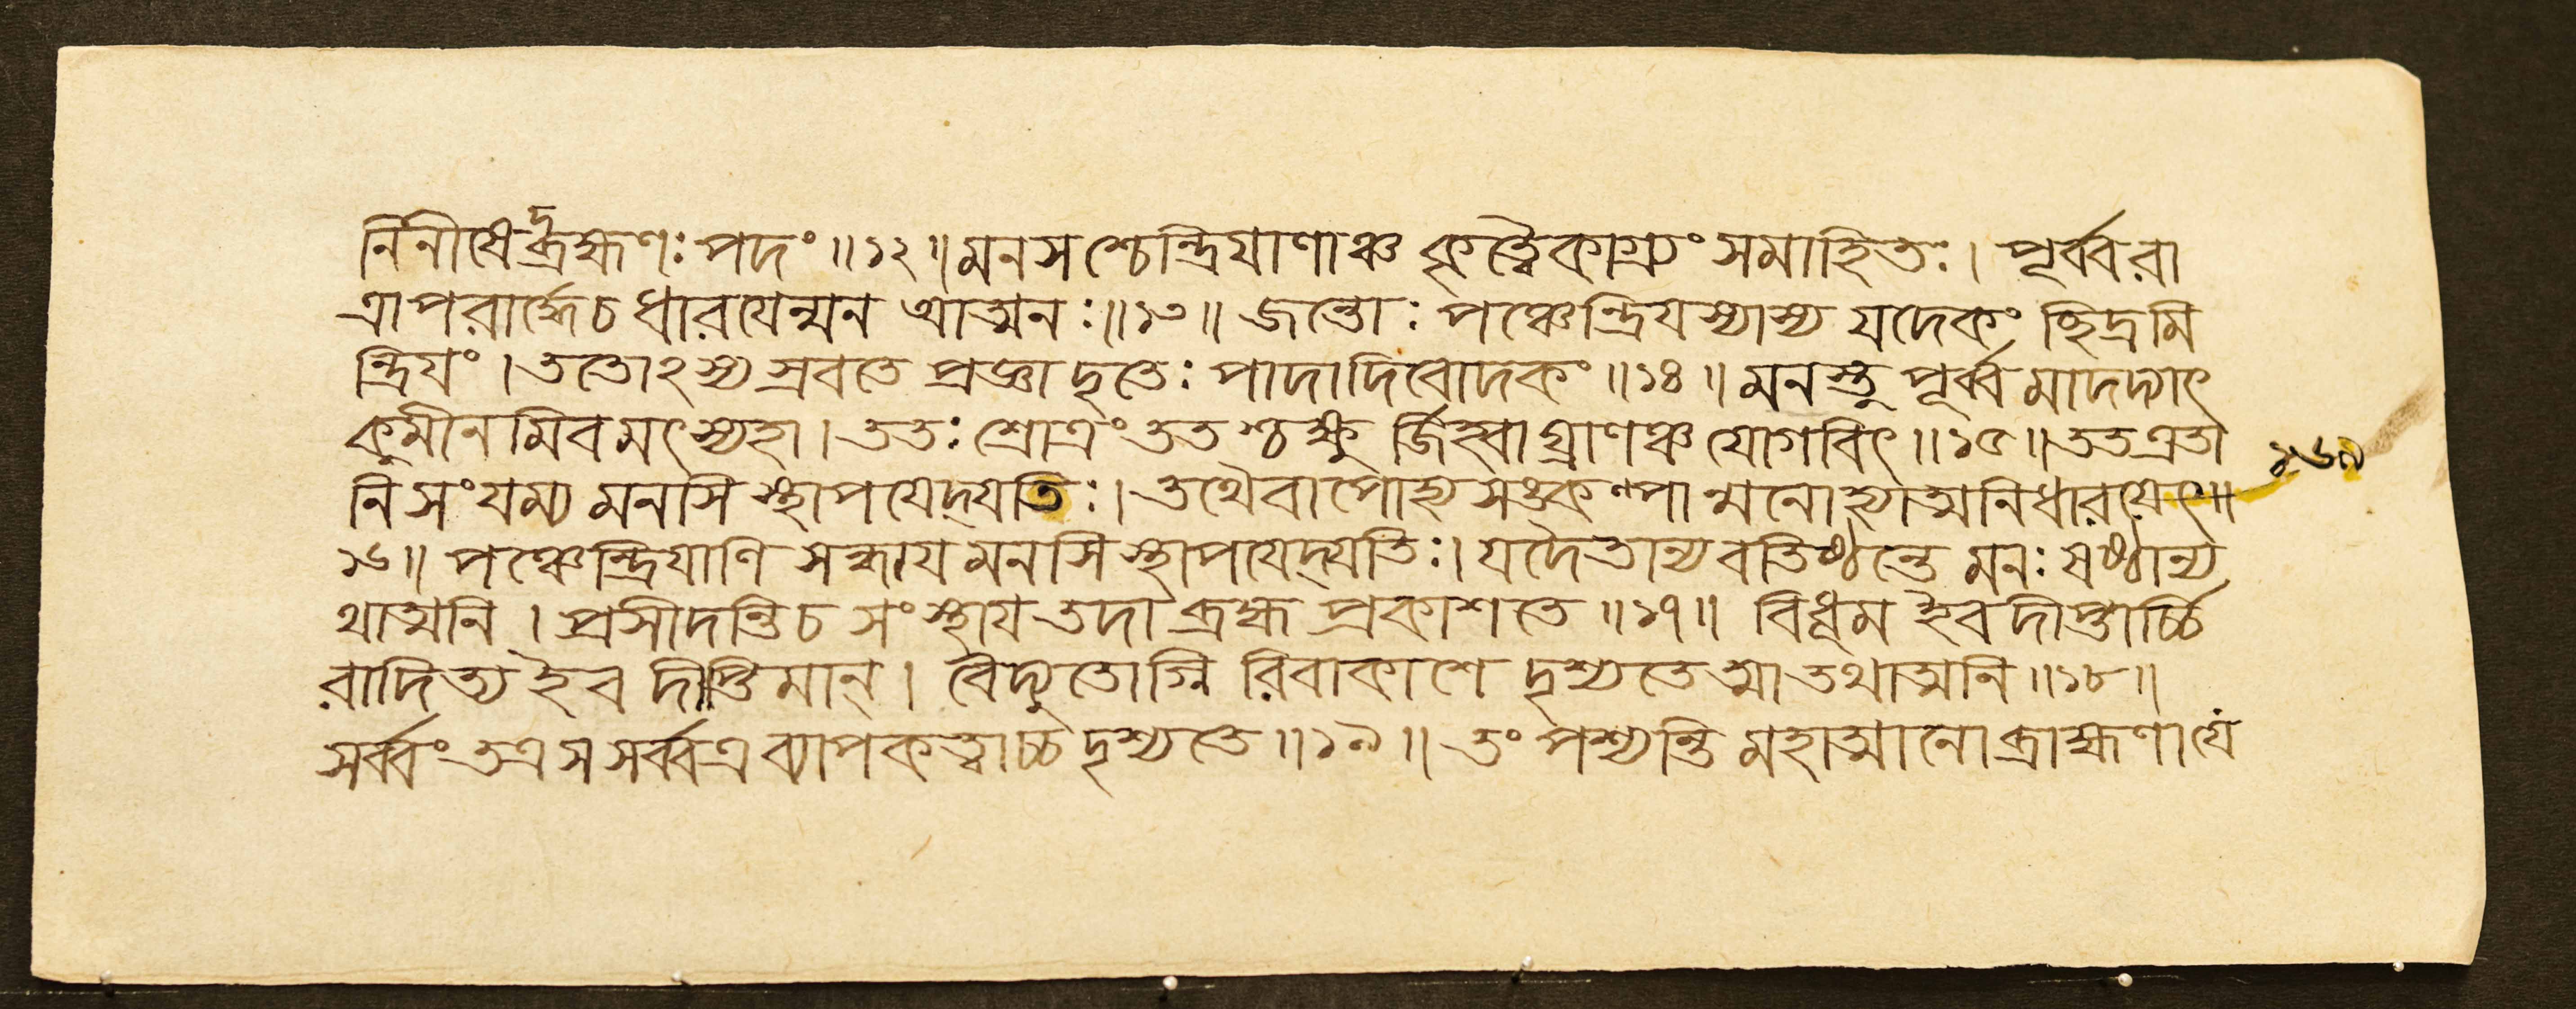 র্নিনীষেদ্ব্রহ্মণঃ পদং ॥১২॥ মনসশ্চেন্দ্রিযাণাঞ্চ কৃত্বৈকাগ্র্যং সমাহিতঃ। পূর্ব্বরা
ত্রাপরার্দ্ধেচ ধারযেন্মন আত্মনঃ॥১৩॥ জন্তোঃ পঞ্চেন্দ্রিযস্যাস্য যদেকং ছিদ্রমি
ন্দ্রিযং। ততোঽস্য স্রবতে প্রজ্ঞা দৃতেঃ পাদাদিবোদকং ॥১৪॥ মনস্তু পূর্ব্বমাদদ্যাৎ
কুমীনমিবমৎস্যহা। ততঃ শ্রোত্রং ততশ্চক্ষু র্জিহ্বা ঘ্রাণঞ্চ যোগবিৎ ॥১৫॥ তত এতা
নি সংযম্য মনসি স্থাপযেদ্যতিঃ। তথৈবাপোহ্য সঙ্কল্পান্মনোহ্যাত্মনি ধারযেৎ॥
১৬॥ পঞ্চেন্দ্রিযাণি সন্ধায মনসি স্থাপযেদ্যতিঃ। যদৈতান্যবতিষ্ঠন্তে মনঃ ষষ্ঠান্য
থাত্মনি। প্রসীদন্তি চ সংস্থায তদা ব্রহ্ম প্রকাশতে ॥১৭॥ বিধূম ইব দীপ্তার্চ্চি
রাদিত্য ইব দীপ্তিমান্। বৈদ্যুতোগ্নি রিবাকাশে দৃশ্যতে আত্মাতথাত্মনি ॥১৮॥
সর্ব্বং তত্র স সর্ব্বত্র ব্যাপকত্বাচ্চ দৃশ্যতে ॥১৯॥ তং পশ্যন্তি মহাত্মানো ব্রাহ্মণা যে